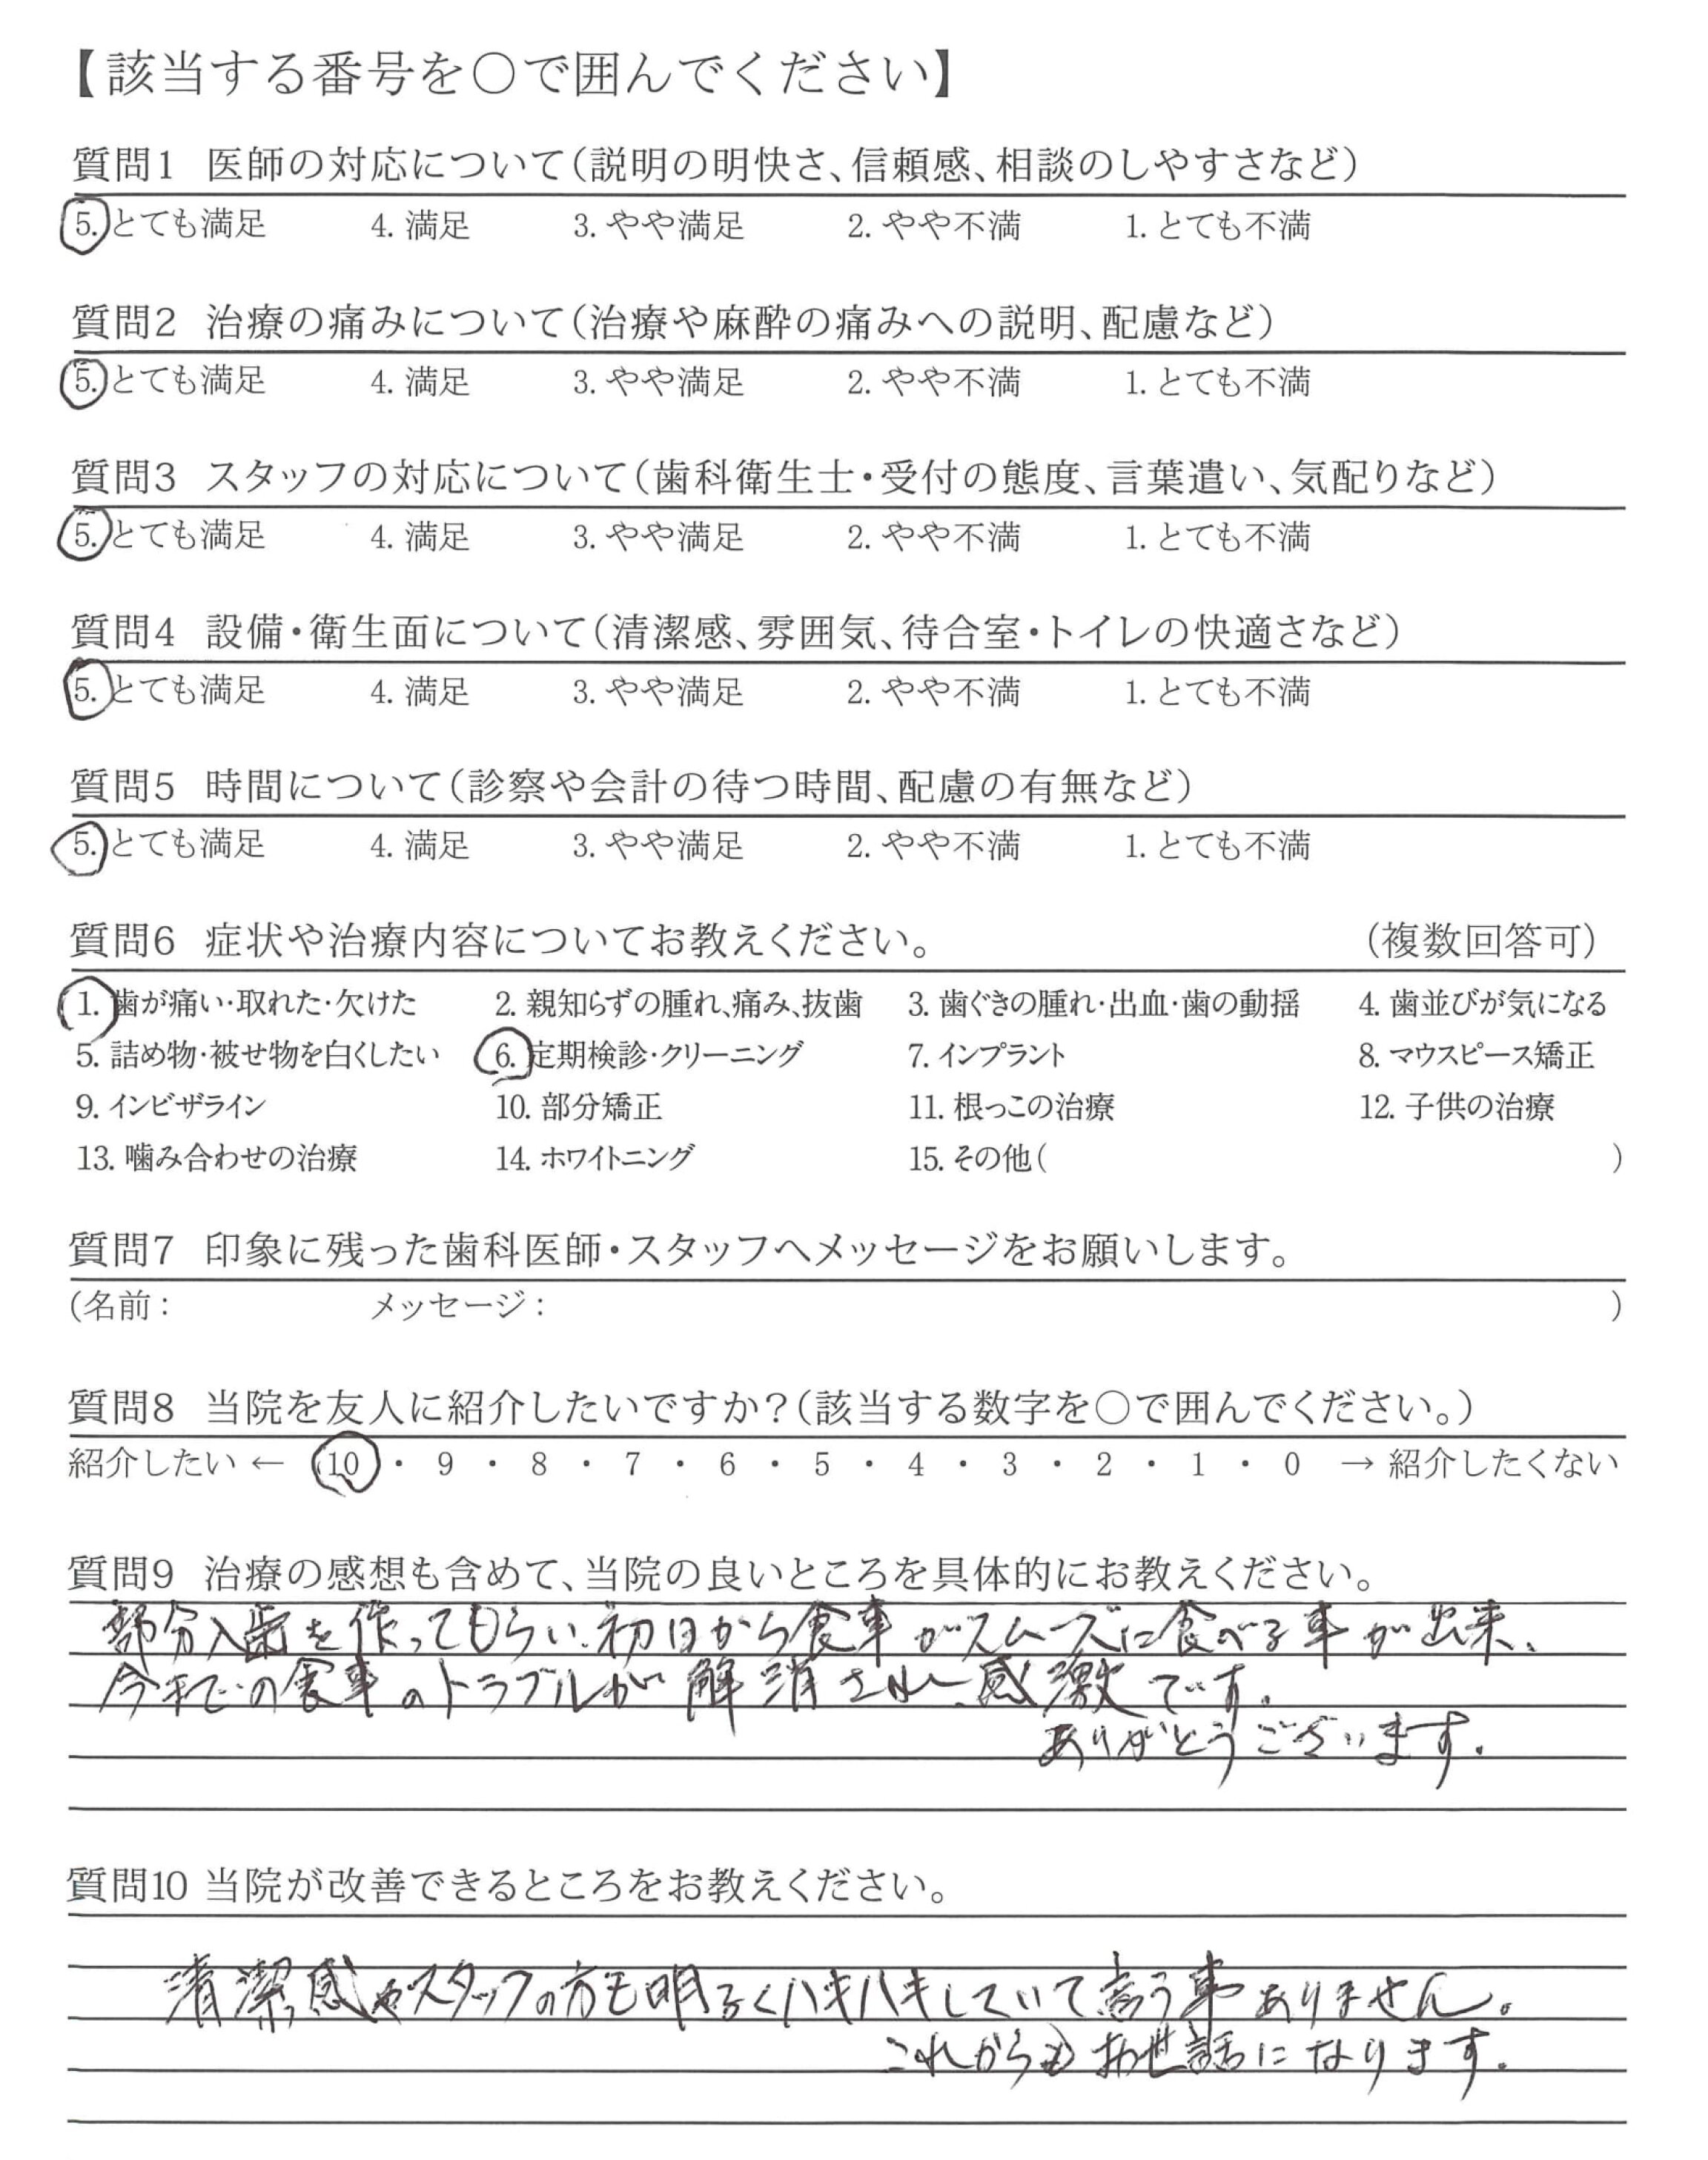 【該当する番号を○で囲んでください】
質問1 医師の対応について(説明の明快さ、信頼感、相談のしやすさなど)
5. とても満足 4. 満足 3. やや満足 2. やや不満 1. とても不満
質問2 治療の痛みについて(治療や麻酔の痛みへの説明、配慮など)
5. とても満足 4. 満足 3. やや満足 2. やや不満 1. とても不満
質問3 スタッフの対応について(歯科衛生士・受付の態度、言葉遣い、気配りなど)
5. とても満足 4. 満足 3. やや満足 2. やや不満 1. とても不満
質問4 設備・衛生面について(清潔感、雰囲気、待合室・トイレの快適さなど)
5. とても満足 4. 満足 3. やや満足 2. やや不満 1. とても不満
質問5 時間について(診察や会計の待つ時間、配慮の有無など)
5. とても満足 4. 満足 3. やや満足 2. やや不満 1. とても不満
質問6 症状や治療内容についてお教えください。 (複数回答可)
1. 歯が痛い・取れた・欠けた 2. 親知らずの腫れ、痛み、抜歯 3. 歯ぐきの腫れ・出血・歯の動揺 4. 歯並びが気になる
5. 詰め物・被せ物を白くしたい 6. 定期検診・クリーニング 7. インプラント 8. マウスピース矯正
9. インビザライン 10. 部分矯正 11. 根っこの治療 12. 子供の治療
13. 噛み合わせの治療 14. ホワイトニング 15. その他( )
質問7 印象に残った歯科医師・スタッフへメッセージをお願いします。
(名前: メッセージ: )
質問8 当院を友人に紹介したいですか?(該当する数字を○で囲んでください。)
紹介したい ← 10 ・ 9 ・ 8 ・ 7 ・ 6 ・ 5 ・ 4 ・ 3 ・ 2 ・ 1 ・ 0 → 紹介したくない
質問9 治療の感想も含めて、当院の良いところを具体的にお教えください。
部分入歯を作ってもらい、初日から食事がスムーズに食べる事が出来、
今までの食事のトラブルが解消され、感激です。
ありがとうございます。
質問10 当院が改善できるところをお教えください。
清潔感やスタッフの方も明るくハキハキしていて言う事ありません。
これからもお世話になります。